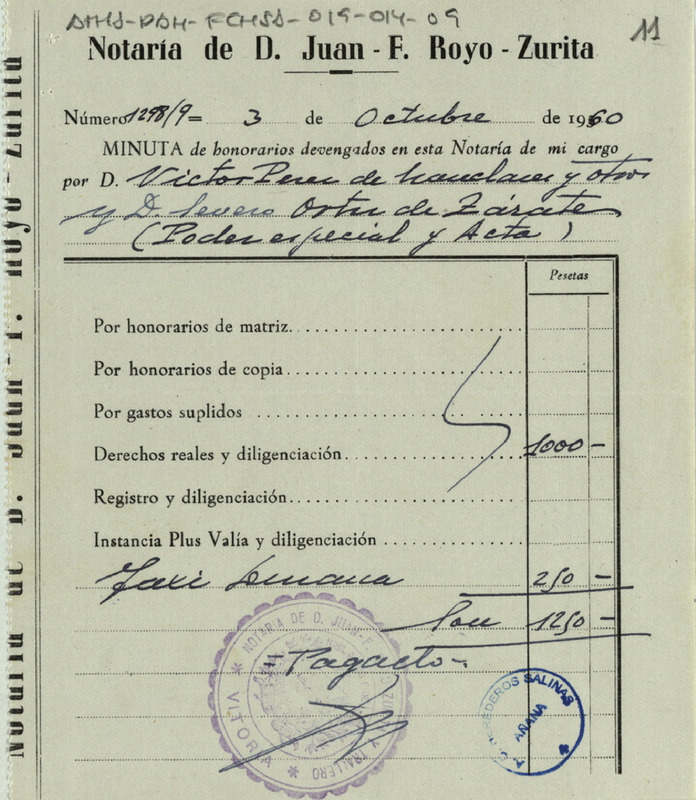 AMHS-PDH-FCHSA-019-014-09
11
Notaría de D. Juan-F. Royo-Zurita
Número 1298/9= 3 de Octubre de 1960
MINUTA de honorarios devengados en esta Notaría de mi cargo
por D. Victor Perez de y otros
y D. Severo Ortiz de Zárate
(Poder especial y Acta)
Pesetas
Por honorarios de matriz
Por honorarios de copia
Por gastos suplidos
Derechos reales y diligenciación 1000 -
Registro y diligenciación
Instancia Plus Valía y diligenciación
Taxi 250 -
Son 1250 -
Pagado -
NOTARIA DE D. JUAN-F.
VITORIA
HEREDEROS SALINAS
AÑANA
Notaría de D. Juan-F. Royo-Zurita